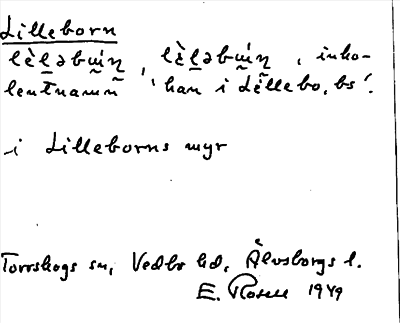 Lilleborn
lèḷəbɯ́ɳ, lèḷəbɯ́ɳ, inko-
lentnamn 'han i Lillebo, bs'.
i Lilleborns myr
Torrskogs sn, Vedbo hd, Älvsborgs l.
E. Rosell 1949